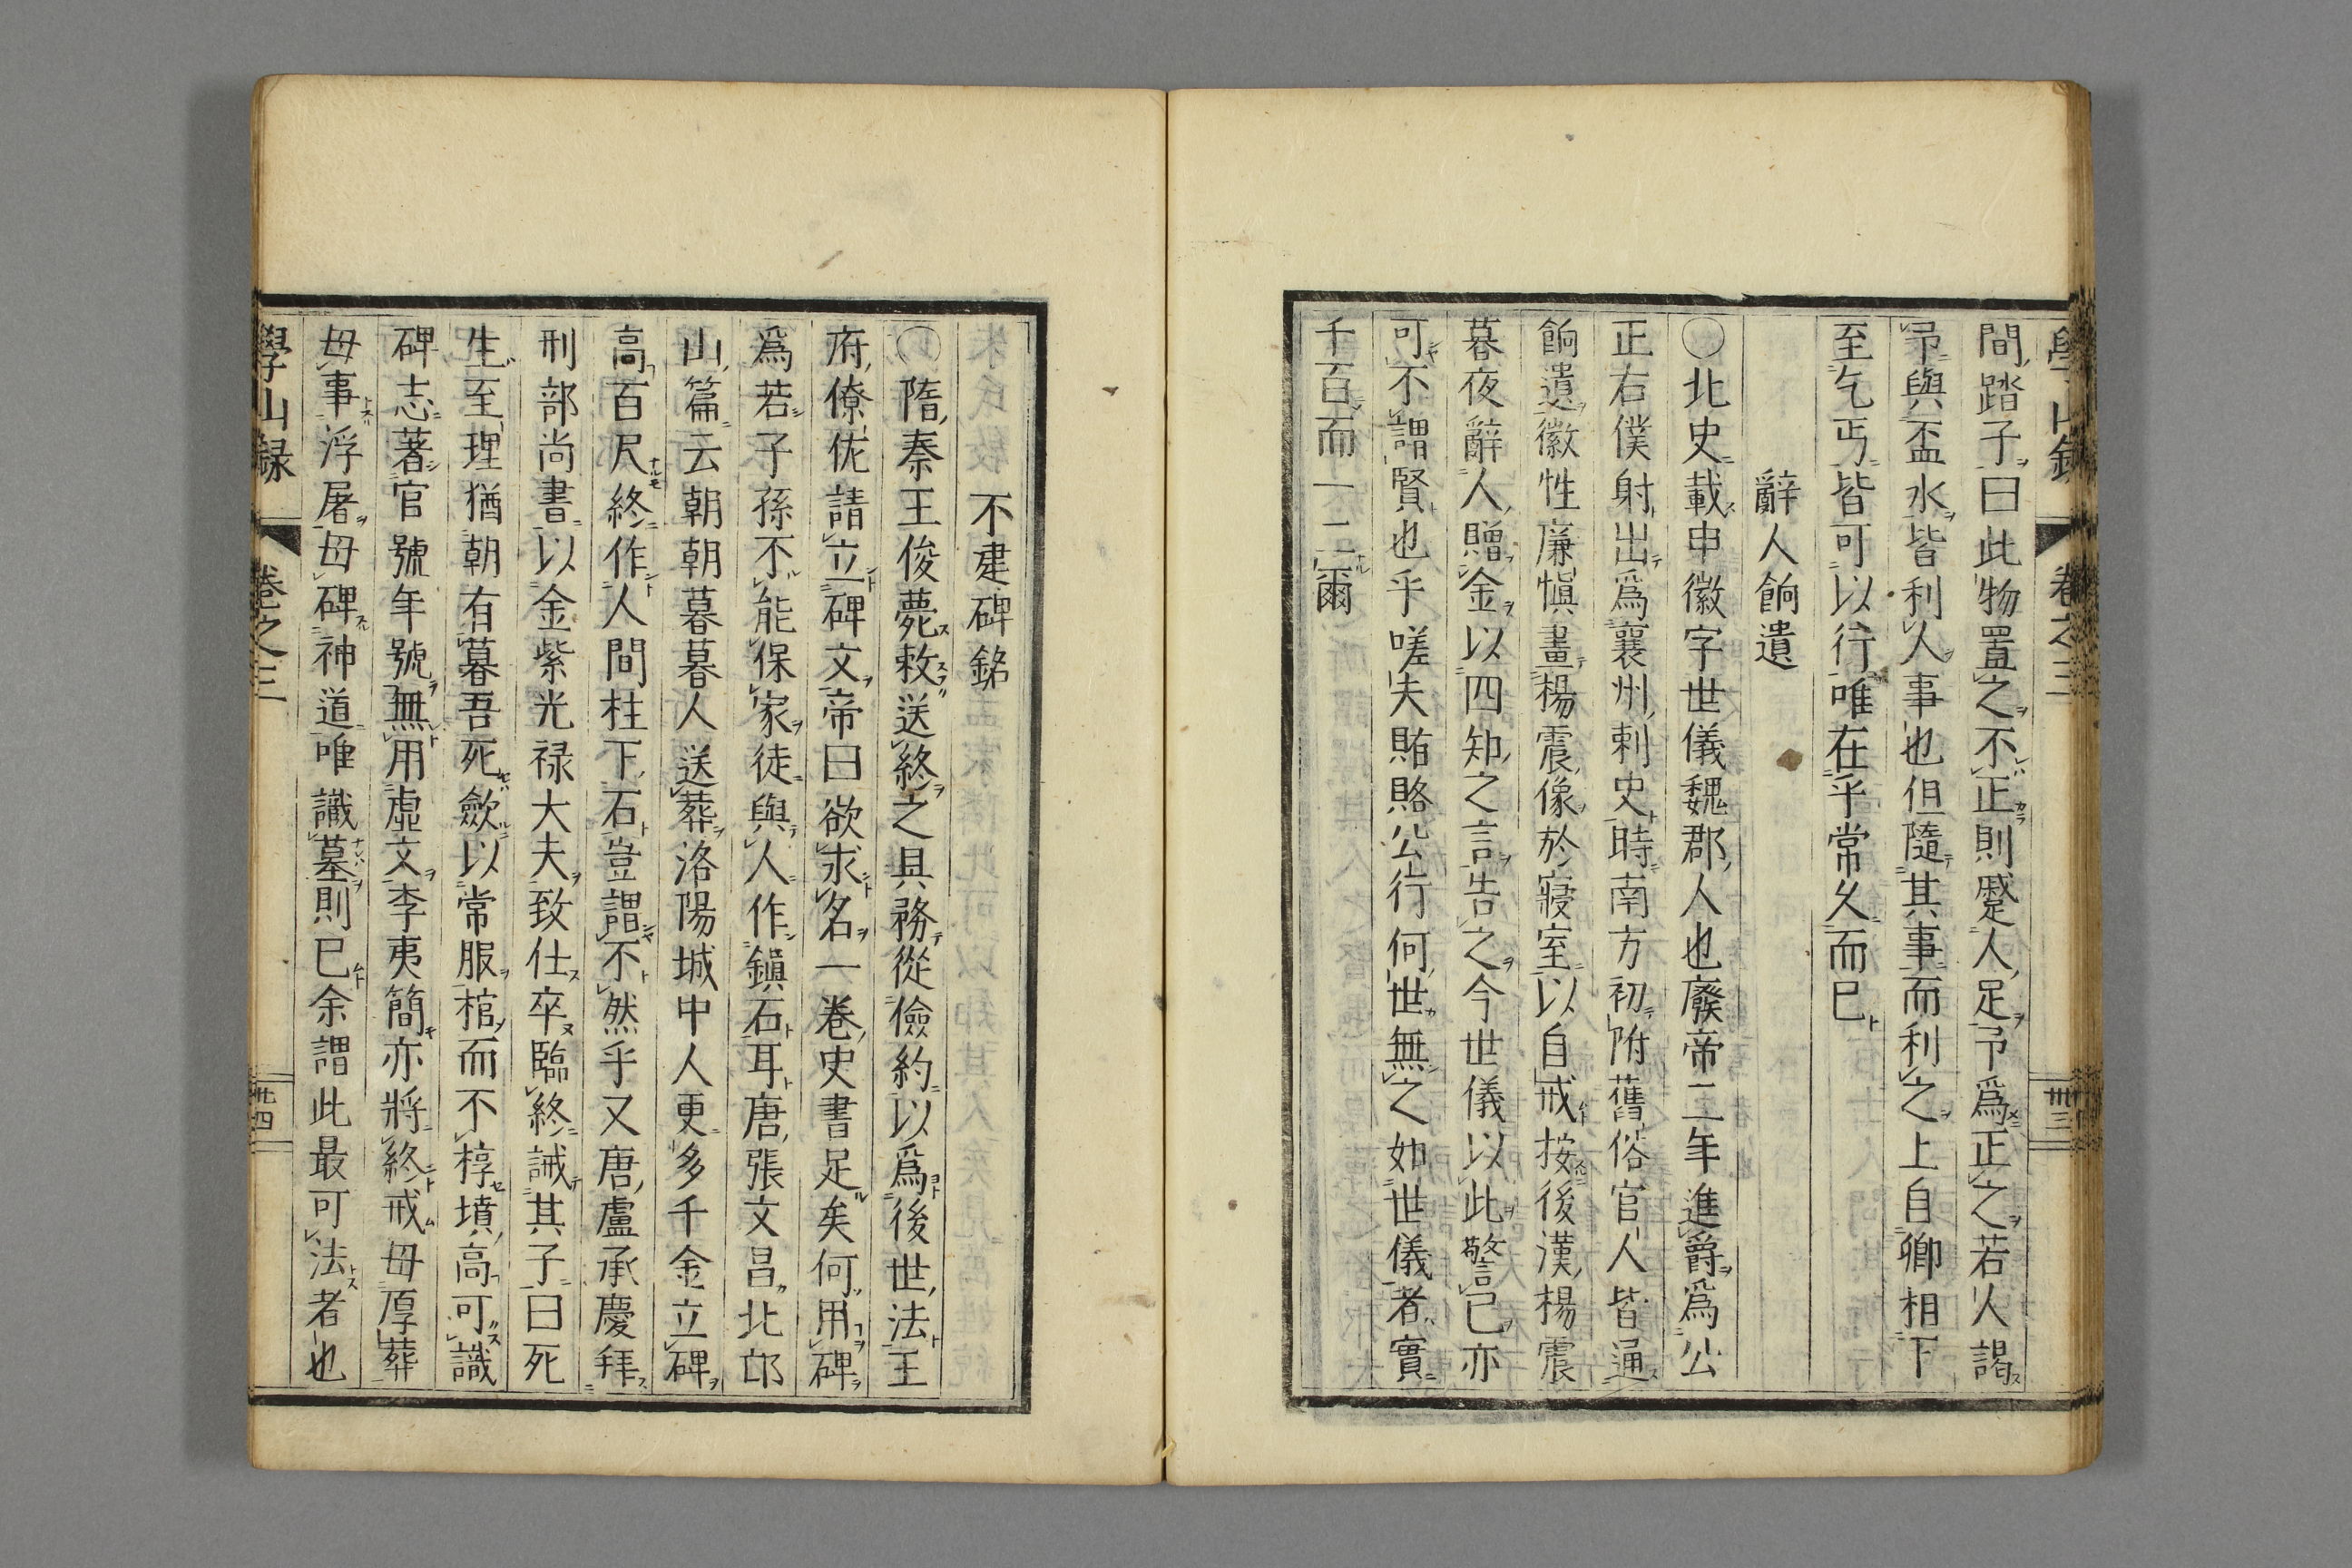 學山錄 卷之三 卅三
間踏子曰此物置之不正則蹙人足予爲正之若人謁
予與盃水皆利人事也但隨其事而利之上自卿相下
至乞丐皆可以行唯在乎常久而已
辭人餉遺
〇北史載申徽字世儀魏郡人也廢帝二年進爵爲公
正右僕射出爲襄州刺史時南方初附舊俗官人皆通
餉遺徽性廉愼畫楊震像於寢室以自戒按後漢楊震
暮夜辭人贈金以四知之言告之今世儀以此警己亦
可不謂賢也乎嗟夫賄賂公行何世無之如世儀者實
千百而一二爾
不建碑銘
〇隋秦王俊薨敕送終之具務從儉約以爲後世法王
府僚佐請立碑文帝曰欲求名一卷史書足矣何用碑
爲若子孫不能保家徒與人作鎭石耳唐張文昌北邙
山篇云朝朝暮暮人送葬洛陽城中人更多千金立碑
高百尺終作人間柱下石豈謂不然乎又唐盧承慶拜
刑部尚書以金紫光禄大夫致仕卒臨終誡其子曰死
生至理猶朝有暮吾死歛以常服棺而不椁墳高可識
碑志著官號年號無用虛文李夷簡亦將終戒毋厚葬
毋事浮屠毋碑神道唯識墓則已余謂此最可法者也
學山録 卷之三 卅四